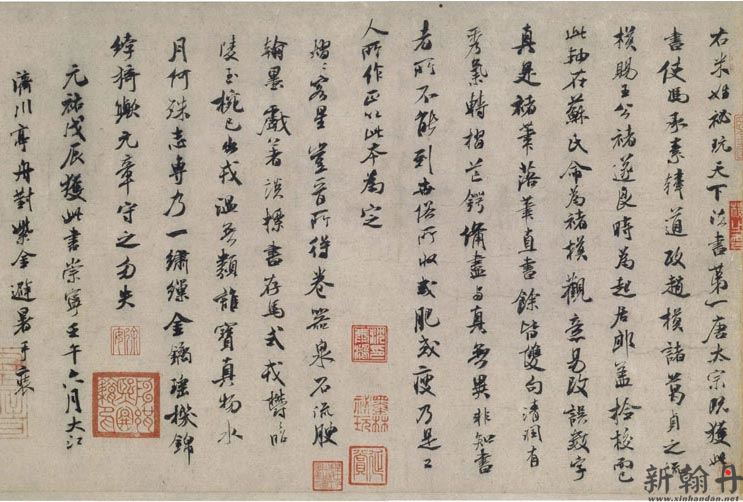 右米姓祕玩天下法書第一唐太宗既獲此
書使馮承素韓道政趙模諸葛貞之流
模賜王公褚遂良時為起居郎蓋檢校而已
此軸在蘇氏命為褚模觀意易改誤數字
真是褚筆落筆直書餘皆雙勾清潤有
秀氣轉摺芒鍔備盡與真無異非知書
者所不能到世俗所收或肥或瘦乃是工
人所作正以此本為定
熠熠客星豈晉所得卷器泉石流腴
翰墨戲著談標書存馬式鬱昭
陵玉椀已出戎溫無類誰寶真物水
月何殊志專乃一繡繅金鐍瑤機錦
綍猗歟元章守之勿失
元祐戊辰獲此書崇寧壬午六月大江
濟川亭舟對紫金避暑手裝
新翰丹
www.xinhandan.net